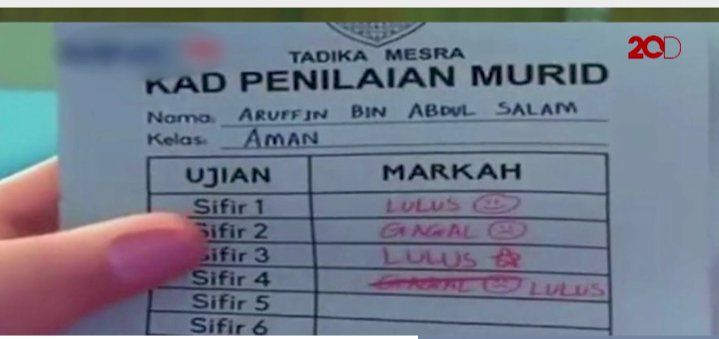 20D
TADIKA MESRA
KAD PENILAIAN MURID
Nama: ARUFFIN BIN ABDUL SALAM
Kelas: AMAN
UJIAN MARKAH
Sifir 1 LULUS
Sifir 2 GAGAL
Sifir 3 LULUS
Sifir 4 GAGAL LULUS
Sifir 5
Sifir 6